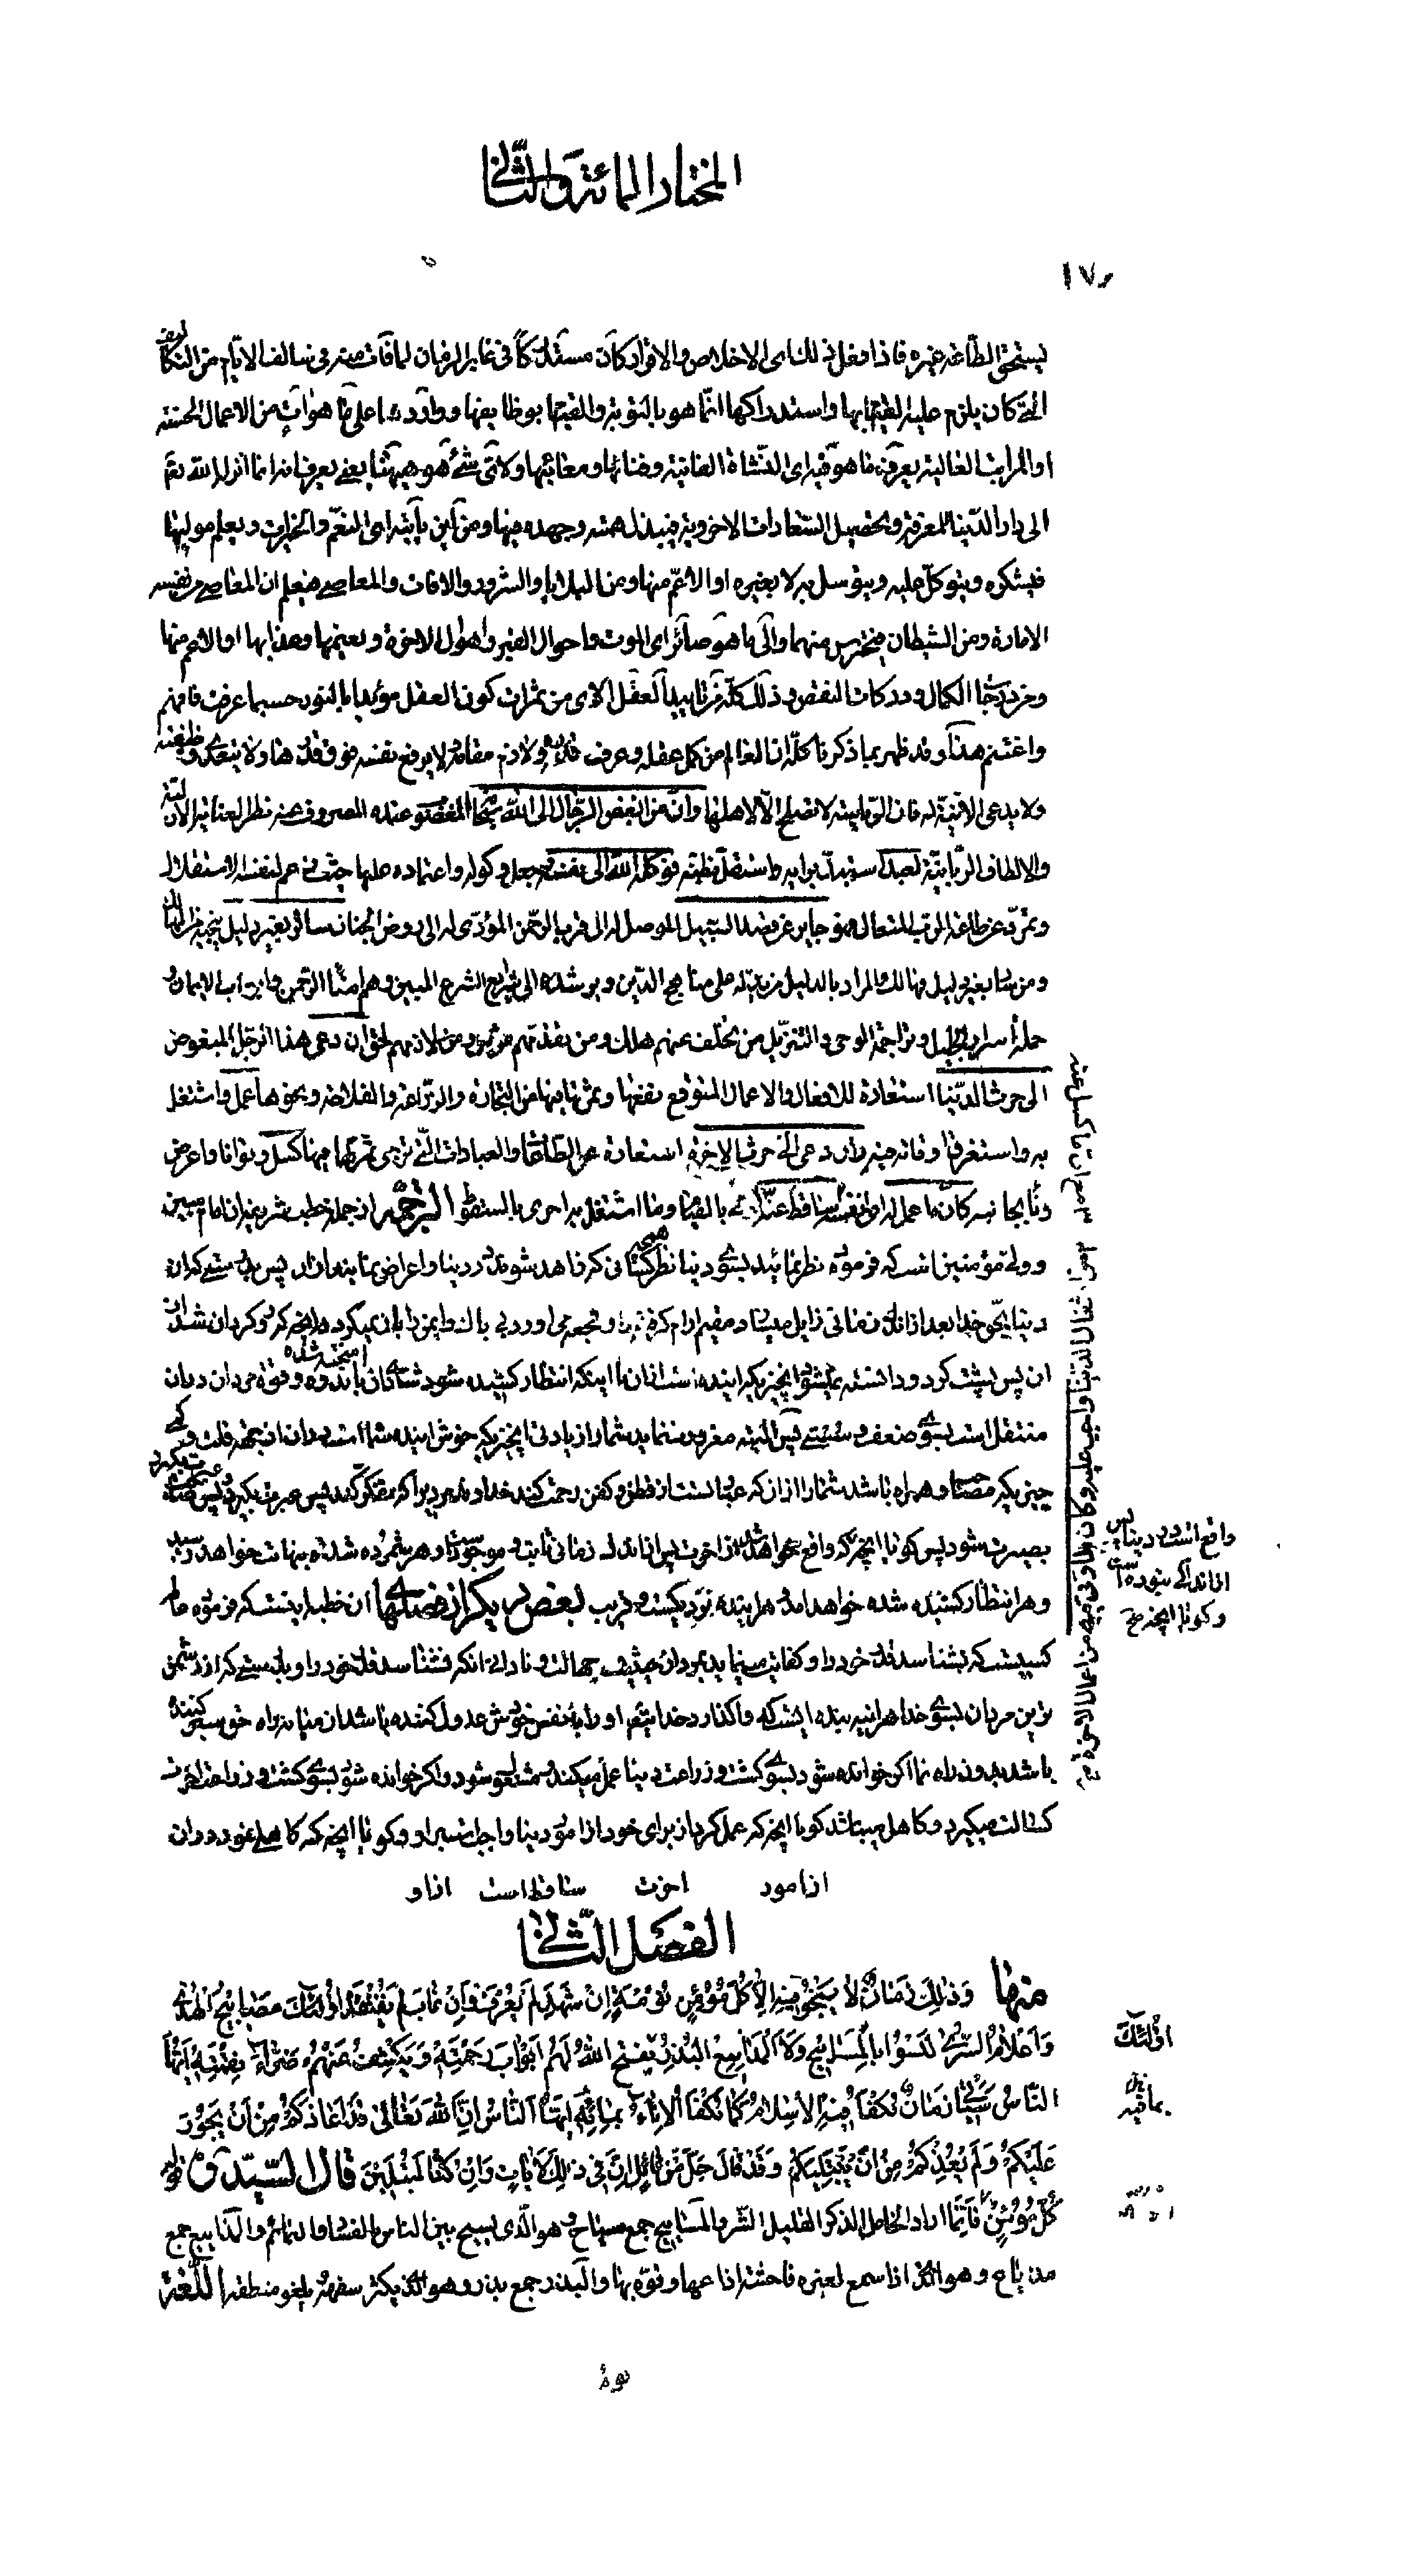 المختار المائة والثاني
١٧٢
يستحق الطاعة غيره فاذا فعل ذلك اى الاخلاص والاقرار كان مستدركاً فى غابر الزمان لما فات منه فى سالف الايام من التكاليف
التى كان يلزم عليه القيام بها واستدراكها انّما هو بالتوبة والقيام بوظايفها ووارداً على ما هو آتٍ من الاعمال الحسنة
او المراتب العالية يعرف ما هو فيه اى النّشاة الفانية وفنائها ومعائبها ولاىّ شئ هو هيهنا يعنى يعرف انه انما انزله الله تعم
الى دار الدّنيا للمعرفة وتحصيل السّعادات الاخروية فيبذل همته وجهده فيها ومن اين يأتيه اى النعم والخيرات ويعلم موليها
فيشكره ويتوكّل عليه ويتوسل به لا بغيره او الاعمّ منها ومن البلايا والشرور والافات والمعاصى فيعلم ان المعاصى من نفسه
الامارة ومن الشيطان فيحترس منهما والى ما هو صائر اى الموت واحوال القبر واهوال الاخرة ونعيمها وعذابها او الاعم منها
ومن درجات الكمال ودركات النقص وذلك كلّه من تاييد العقل الاى من ثمرات كون العقل مؤيدا بالنور حسبما عرفت فافهم
واغتنم هذا وقد ظهر بما ذكرنا كلّه ان العالم من كمل عقله وعرف قدره ولازم مقامه لا يرفع نفسه فوق قدرها ولا يتعدى وظيفته
ولا يدعى الانّية له فان الرّبوبية لا تصلح الّا لاهلها وانّ من ابغض الرّجال الى الله سبحانه الممقوت عنده المصروف عنه نظر العناية الازلية
والالطاف الربانيّة لعبد استبدّ برايه واستقلّ بظنّه فوكله الله الى نفسه جعل وكوله واعتماده عليها حيث زعم لنفسه الاستقلال
وتمرّد عن طاعة الرب المتعال فهو جاير عن قصد السبيل الموصل له الى قرب الرّحمن المؤدّى له الى روض الجنان ساير بغير دليل ينجيه من المهالك
ومن سار بغير دليل فهالك والمراد بالدليل من يدلّه على مناهج الدّين ويرشده الى شرايع الشرع المبين وهم امناء الرحمن وابواب الايمان و
حملة اسرار الجليل وتراجمة الوحى والتنزيل من تخلف عنهم هلك ومن تقدمهم مرق ومن لازمهم لحق ان دعى هذا الرّجل المبغوض
الى حرث الدّنيا استعارة للافعال والاعمال المتوقع نفعها وثمرتها فيها من التجارة والزراعة والفلاحة ونحوها عمل واشتغل
به واستغرق اوقاته فيه وان دعى الى حرث الاخرة استعارة عن الطّاعات والعبادات الّتى ترجى ثمرتها فيها كسل وتوانا واعرض
ونأى بجانبه كان ما عمل له وانّ ما ونى فيه ساقط عنه
الترجمة از جمله خطب شريفه ان امام مبين
وولى مؤمنين است كه فرموده نظر نمائيد بسوى دنيا همچه نظر كسانى كه زاهد شوندگانند در دنيا واعراض نمايند از او پس بدرستى كه ان
دنيا بحق خدا بعد از اندك زمانى زايل ميسازد مقيم ارام گرفته را وبفجعه مى اورد
ان پس پشت كرد ودانسته نميشود انچيزيكه اينده است از ان تا اينكه انتظار كشيده شود شادى ان با اندوه اميخته شده وقوة مردان در ان
منتقل است بسوى ضعف وسستى پس البته مغرور ننمايد شما را زيادتى انچيزيكه خوش ايند شما است در ان از جهة قلت وكمى
چيزيكه مصاحب وهمراه باشد شما را از ان كه عبارتست از قطن وكفن رحمت كند خداوند مرديرا كه تفكر كند پس عبرت بگيرد
بصيرت شود پس گويا انچيزيكه واقع خواهد شد از اخرت پس از اندك زمانى ثابت وموجود است وهر شمرده شده بنهايت خواهد رسيد
وهر انتظار كشيده شده خواهد امد وهر اينده نزديكست وقريب بعض ديگر از فصلهاى ان خطبه اينست كه فرموده عالم
كسيست كه بشناسد قدر خود را وكفايت مينمايد بمرد از حيثيت جهالت ونادانى انكه نشناسد قدر خود را وبدرستى كه از دشمن
ترين مردان بسوى خدا هراينه بنده ايست كه واگذارد خدايتعم او را بنفس خويش عدول كننده باشد از ميانه راه حق سير كننده
باشد بدون راه نما اگر خوانده شود بسوى كشت وزراعت دنيا عمل ميكند ومشغول شود واگر خوانده شود بسوى كشت وزراعت اخرت
كسالت ميگيرد وكاهل ميباشد گويا انچه كه عمل كرد از براى خود از امور دنيا واجبست بر او وگويا انچه كه كاهلى نمود در ان
از امور اخرت ساقط است از او
الفصل الثّانى
منها وَذٰلِكَ زَمَانٌ لَا يَنْجُو فِيهِ اِلَّا كُلُّ مُؤْمِنٍ نُوَمَةٍ اِنْ شَهِدَ لَمْ يُعْرَفْ وَاِنْ غَابَ لَمْ يُفْتَقَدْ اُولٰئِكَ مَصَابِيحُ الْهُدٰى
وَاَعْلَامُ السُّرٰى لَيْسُوا بِالْمَسَايِيحِ وَلَا الْمَذَايِيعِ الْبُذُرِ يَفْتَحُ اللهُ لَهُمْ اَبْوَابَ رَحْمَتِهِ وَيَكْشِفُ عَنْهُمْ ضَرَّاءَ نِقْمَتِهِ اَيُّهَا
النَّاسُ سَيَأْتِى زَمَانٌ تُكْفَأُ فِيهِ الْاِسْلَامُ كَمَا تُكْفَأُ الْاِنَاءُ بِمَائِهِ اَيُّهَا النَّاسُ اِنَّ اللهَ تَعَالٰى قَدْ اَعَاذَكُمْ مِنْ اَنْ يَجُورَ
عَلَيْكُمْ وَلَمْ يُعِذْكُمْ مِنْ اَنْ يَبْتَلِيَكُمْ وَقَدْ قَالَ جَلَّ مَنْ قَائِلٍ اِنَّ فِى ذٰلِكَ لَاٰيَاتٍ وَاِنْ كُنَّا لَمُبْتَلِينَ قال السّيّد ره قوله
كُلُّ مُؤْمِنٍ فَاِنَّمَا اراد الخامل الذكر القليل الشّر والمساييح جمع مسياح وهو الّذى يسيح بين الناس بالفساد والنمائم والمذاييع جمع
مذياع وهو الّذى اذا سمع لغيره فاحشة اذاعها ونوّه بها والبذر جمع بذور وهو الّذى يكثر سفهه ويلغو منطقه اللّغة
اولئك
واقع است در دنيا پس